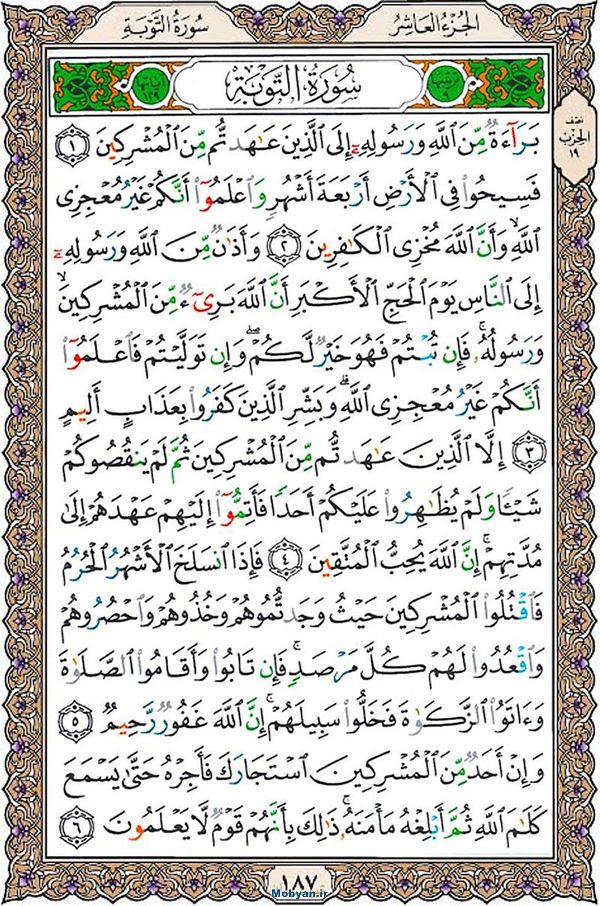 الجزء العاشر
سورة التوبة
سُورَةُ التَّوۡبَةِ
نصف
الحزب
١٩
بَرَآءَةٌ مِّنَ ٱللَّهِ وَرَسُولِهِۦٓ إِلَى ٱلَّذِينَ عَٰهَدتُّم مِّنَ ٱلۡمُشۡرِكِينَ ١
فَسِيحُواْ فِي ٱلۡأَرۡضِ أَرۡبَعَةَ أَشۡهُرٖ وَٱعۡلَمُوٓاْ أَنَّكُمۡ غَيۡرُ مُعۡجِزِي
ٱللَّهِ وَأَنَّ ٱللَّهَ مُخۡزِي ٱلۡكَٰفِرِينَ ٢ وَأَذَٰنٞ مِّنَ ٱللَّهِ وَرَسُولِهِۦٓ
إِلَى ٱلنَّاسِ يَوۡمَ ٱلۡحَجِّ ٱلۡأَكۡبَرِ أَنَّ ٱللَّهَ بَرِيٓءٞ مِّنَ ٱلۡمُشۡرِكِينَ
وَرَسُولُهُۥۚ فَإِن تُبۡتُمۡ فَهُوَ خَيۡرٞ لَّكُمۡۖ وَإِن تَوَلَّيۡتُمۡ فَٱعۡلَمُوٓاْ
أَنَّكُمۡ غَيۡرُ مُعۡجِزِي ٱللَّهِۗ وَبَشِّرِ ٱلَّذِينَ كَفَرُواْ بِعَذَابٍ أَلِيمٍ
٣ إِلَّا ٱلَّذِينَ عَٰهَدتُّم مِّنَ ٱلۡمُشۡرِكِينَ ثُمَّ لَمۡ يَنقُصُوكُمۡ
شَيۡـٔٗا وَلَمۡ يُظَٰهِرُواْ عَلَيۡكُمۡ أَحَدٗا فَأَتِمُّوٓاْ إِلَيۡهِمۡ عَهۡدَهُمۡ إِلَىٰ
مُدَّتِهِمۡۚ إِنَّ ٱللَّهَ يُحِبُّ ٱلۡمُتَّقِينَ ٤ فَإِذَا ٱنسَلَخَ ٱلۡأَشۡهُرُ ٱلۡحُرُمُ
فَٱقۡتُلُواْ ٱلۡمُشۡرِكِينَ حَيۡثُ وَجَدتُّمُوهُمۡ وَخُذُوهُمۡ وَٱحۡصُرُوهُمۡ
وَٱقۡعُدُواْ لَهُمۡ كُلَّ مَرۡصَدٖۚ فَإِن تَابُواْ وَأَقَامُواْ ٱلصَّلَوٰةَ
وَءَاتَوُاْ ٱلزَّكَوٰةَ فَخَلُّواْ سَبِيلَهُمۡۚ إِنَّ ٱللَّهَ غَفُورٞ رَّحِيمٞ ٥
وَإِنۡ أَحَدٞ مِّنَ ٱلۡمُشۡرِكِينَ ٱسۡتَجَارَكَ فَأَجِرۡهُ حَتَّىٰ يَسۡمَعَ
كَلَٰمَ ٱللَّهِ ثُمَّ أَبۡلِغۡهُ مَأۡمَنَهُۥۚ ذَٰلِكَ بِأَنَّهُمۡ قَوۡمٞ لَّا يَعۡلَمُونَ ٦
١٨٧
Mobyan.ir